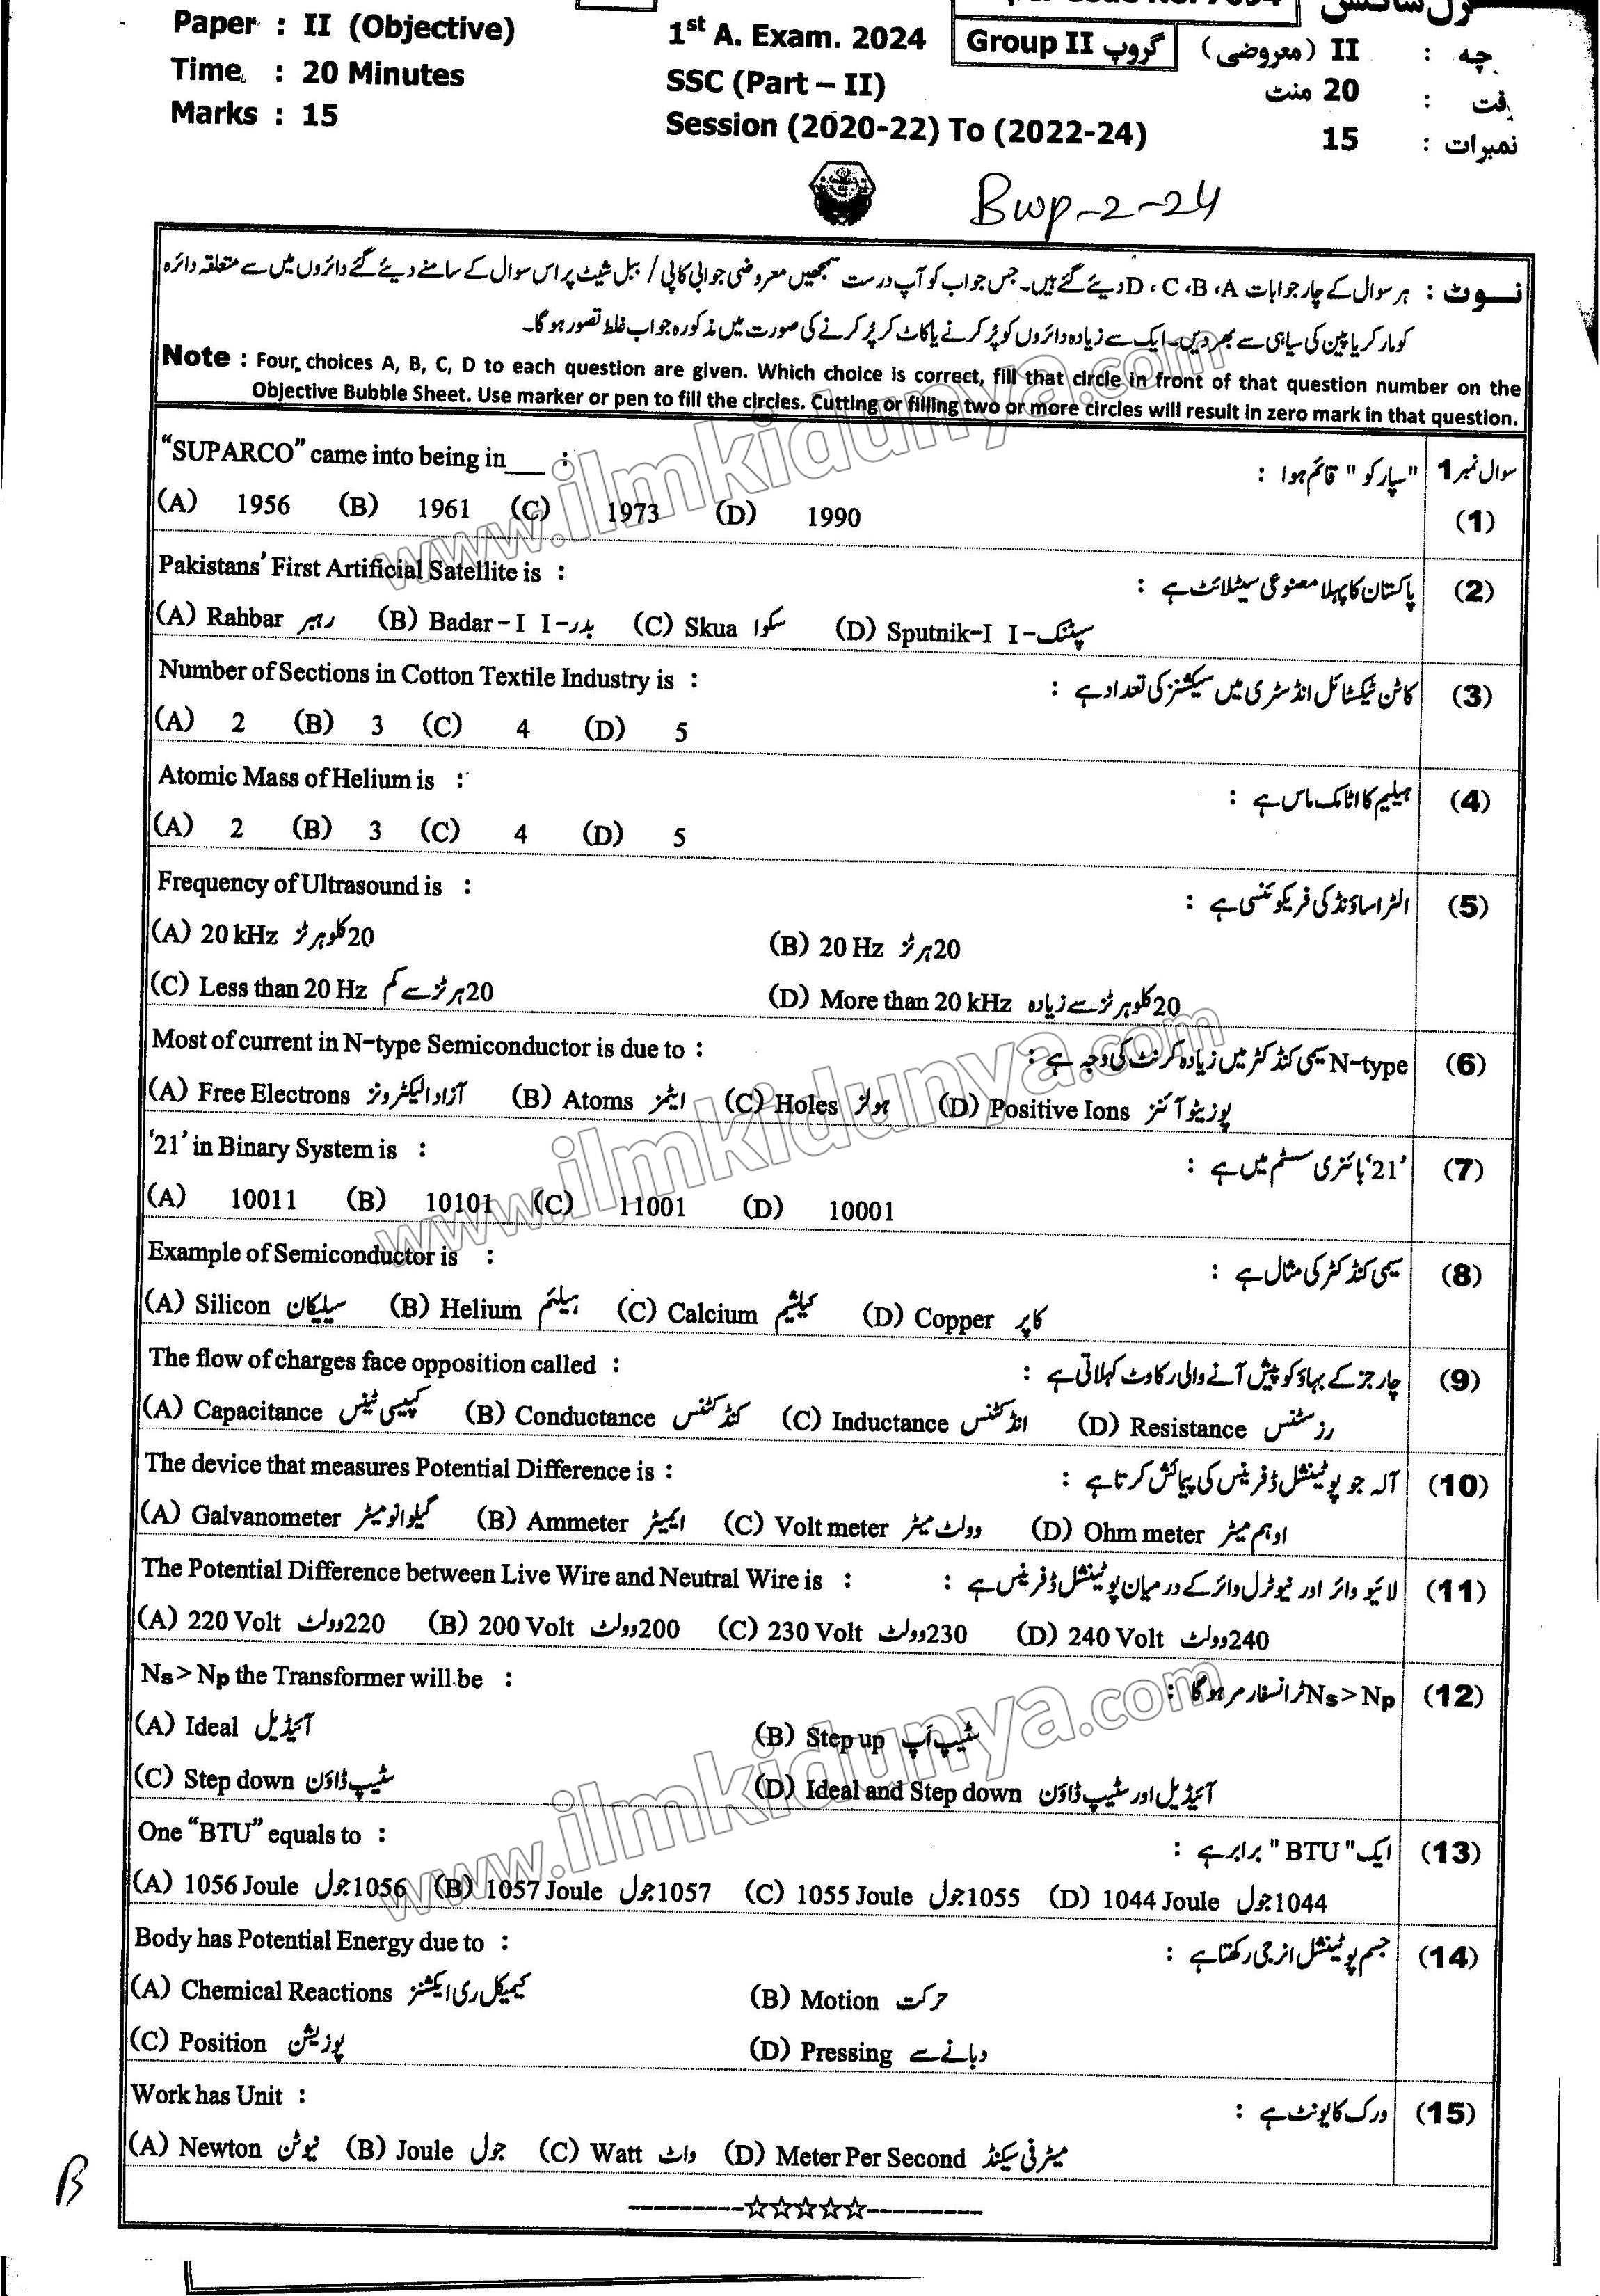 Paper : II (Objective)
1st A. Exam. 2024
Group II گروپ
II (معروضی)
Time : 20 Minutes
SSC (Part – II)
20 منٹ
Marks : 15
Session (2020-22) To (2022-24)
نمبرات : 15
Bwp-2-24
نوٹ : ہر سوال کے چار جوابات A، B، C، D دیئے گئے ہیں۔ جس جواب کو آپ درست سمجھیں معروضی جوابی کاپی / ببل شیٹ پر اس سوال کے سامنے دیئے گئے دائروں میں سے متعلقہ دائرہ
کو مارکر یا پین کی سیاہی سے بھر دیں۔ ایک سے زیادہ دائروں کو پُر کرنے یا کاٹ کر پُر کرنے کی صورت میں مذکورہ جواب غلط تصور ہو گا۔
Note : Four choices A, B, C, D to each question are given. Which choice is correct, fill that circle in front of that question number on the
Objective Bubble Sheet. Use marker or pen to fill the circles. Cutting or filling two or more circles will result in zero mark in that question.
"SUPARCO" came into being in___ :
"سپارکو" قائم ہوا :
سوال نمبر 1
(1)
(A) 1956 (B) 1961 (C) 1973 (D) 1990
Pakistans' First Artificial Satellite is :
پاکستان کا پہلا مصنوعی سیٹلائٹ ہے :
(2)
(A) Rahbar رہبر (B) Badar-I بدر-I (C) Skua سکوا (D) Sputnik-I سپٹنک-I
Number of Sections in Cotton Textile Industry is :
کاٹن ٹیکسٹائل انڈسٹری میں سیکشنز کی تعداد ہے :
(3)
(A) 2 (B) 3 (C) 4 (D) 5
Atomic Mass of Helium is :
ہیلیم کا اٹامک ماس ہے :
(4)
(A) 2 (B) 3 (C) 4 (D) 5
Frequency of Ultrasound is :
الٹراساؤنڈ کی فریکوئنسی ہے :
(5)
(A) 20 kHz 20کلوہرٹز (B) 20 Hz 20ہرٹز
(C) Less than 20 Hz 20ہرٹز سے کم (D) More than 20 kHz 20کلوہرٹز سے زیادہ
Most of current in N-type Semiconductor is due to :
N-type سیمی کنڈکٹر میں زیادہ کرنٹ کی وجہ ہے :
(6)
(A) Free Electrons آزاد الیکٹرونز (B) Atoms ایٹمز (C) Holes ہولز (D) Positive Ions پوزیٹو آئنز
'21' in Binary System is :
'21' بائنری سسٹم میں ہے :
(7)
(A) 10011 (B) 10101 (C) 11001 (D) 10001
Example of Semiconductor is :
سیمی کنڈکٹر کی مثال ہے :
(8)
(A) Silicon سیلیکان (B) Helium ہیلیئم (C) Calcium کیلشیم (D) Copper کاپر
The flow of charges face opposition called :
چارجز کے بہاؤ کو پیش آنے والی رکاوٹ کہلاتی ہے :
(9)
(A) Capacitance کپیسی ٹینس (B) Conductance کنڈکٹنس (C) Inductance انڈکٹنس (D) Resistance رزسٹنس
The device that measures Potential Difference is :
آلہ جو پوٹینشل ڈفرینس کی پیمائش کرتا ہے :
(10)
(A) Galvanometer گیلوانومیٹر (B) Ammeter ایمیٹر (C) Volt meter وولٹ میٹر (D) Ohm meter اوہم میٹر
The Potential Difference between Live Wire and Neutral Wire is :
لائیو وائر اور نیوٹرل وائر کے درمیان پوٹینشل ڈفرینس ہے :
(11)
(A) 220 Volt 220وولٹ (B) 200 Volt 200وولٹ (C) 230 Volt 230وولٹ (D) 240 Volt 240وولٹ
Ns > Np the Transformer will be :
Ns > Np ٹرانسفارمر ہوگا :
(12)
(A) Ideal آئیڈیل (B) Step up سٹیپ اَپ
(C) Step down سٹیپ ڈاؤن (D) Ideal and Step down آئیڈیل اور سٹیپ ڈاؤن
One "BTU" equals to :
ایک "BTU" برابر ہے :
(13)
(A) 1056 Joule 1056جول (B) 1057 Joule 1057جول (C) 1055 Joule 1055جول (D) 1044 Joule 1044جول
Body has Potential Energy due to :
جسم پوٹینشل انرجی رکھتا ہے :
(14)
(A) Chemical Reactions کیمیکل ری ایکشنز (B) Motion حرکت
(C) Position پوزیشن (D) Pressing دبانے سے
Work has Unit :
ورک کا یونٹ ہے :
(15)
(A) Newton نیوٹن (B) Joule جول (C) Watt واٹ (D) Meter Per Second میٹر فی سیکنڈ
---------☆☆☆☆☆---------
B
www.ilmkidunya.com
www.ilmkidunya.com
www.ilmkidunya.com